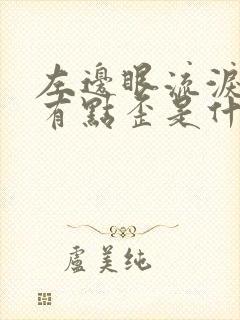 左邊眼流淚
有點歪是什
盧美純